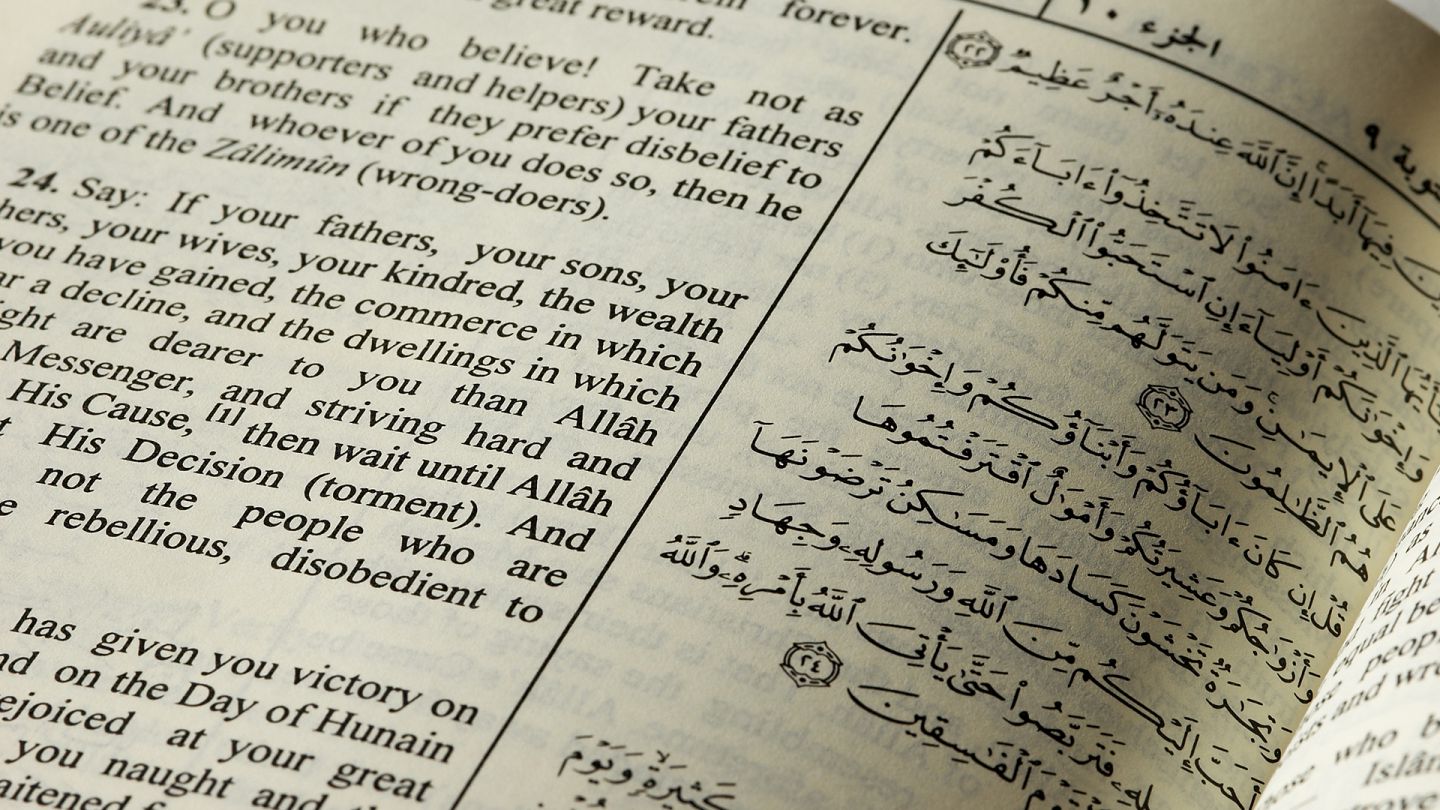 forever.
great reward.
23. O you who believe! Take not as
Auliyâ' (supporters and helpers) your fathers
and your brothers if they prefer disbelief to
Belief. And whoever of you does so, then he
is one of the Zâlimûn (wrong-doers).
24. Say: If your fathers, your sons, your
your wives, your kindred, the wealth
you have gained, the commerce in which
a decline, and the dwellings in which
are dearer to you than Allâh
Messenger, and striving hard and
His Cause, [1] then wait until Allâh
His Decision (torment). And
not the people who are
rebellious, disobedient to
has given you victory on
on the Day of Hunain
at your great
you naught and
الجزء ١٠
٩
فِيهَآ أَبَدًا إِنَّ ٱللَّهَ عِندَهُۥٓ أَجْرٌ عَظِيمٌ ٢٢
ٱلَّذِينَ ءَامَنُوا۟ لَا تَتَّخِذُوٓا۟ ءَابَآءَكُمْ
وَإِخْوَٰنَكُمْ أَوْلِيَآءَ إِنِ ٱسْتَحَبُّوا۟ ٱلْكُفْرَ
عَلَى ٱلْإِيمَـٰنِ وَمَن يَتَوَلَّهُم مِّنكُمْ فَأُو۟لَـٰٓئِكَ
هُمُ ٱلظَّـٰلِمُونَ ٢٣
قُلْ إِن كَانَ ءَابَآؤُكُمْ وَأَبْنَآؤُكُمْ وَإِخْوَٰنُكُمْ
وَأَزْوَٰجُكُمْ وَعَشِيرَتُكُمْ وَأَمْوَٰلٌ ٱقْتَرَفْتُمُوهَا
وَتِجَـٰرَةٌ تَخْشَوْنَ كَسَادَهَا وَمَسَـٰكِنُ تَرْضَوْنَهَآ
أَحَبَّ إِلَيْكُم مِّنَ ٱللَّهِ وَرَسُولِهِۦ وَجِهَادٍ
فَتَرَبَّصُوا۟ حَتَّىٰ يَأْتِىَ ٱللَّهُ بِأَمْرِهِۦ وَٱللَّهُ
ٱلْفَـٰسِقِينَ ٢٤
كَثِيرَةٍ وَيَوْمَ